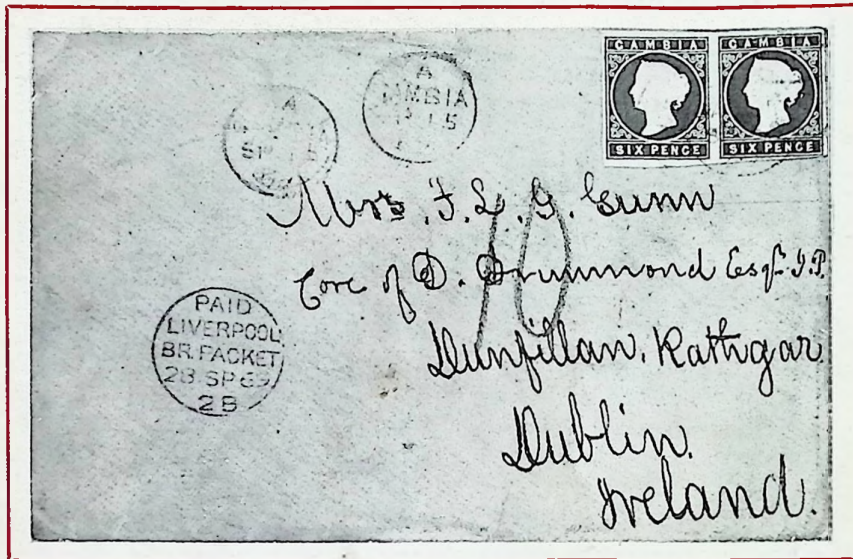 GAMBIA GAMBIA
SIX PENCE SIX PENCE
A
AMBIA
SP 15
A
SP 15
Mrs. F. L. G. Gunn
Care of D. Drummond Esqre. J.P.
10
Dunfillan, Rathgar
Dublin.
Ireland.
PAID
LIVERPOOL
BR. PACKET
28 SP 69
2B